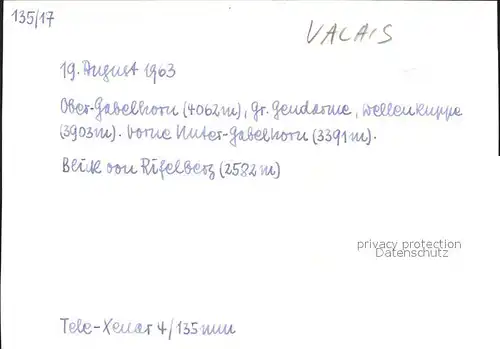 135/17
VALAIS
19. August 1963
Ober-Gabelhorn (4062m), gr. Gendarme, Wellenkuppe
(3903m). Vorne Unter-Gabelhorn (3391m).
Blick von Rifelberg (2582m)
privacy protection
Datenschutz
Tele-Xenar 4/135mm